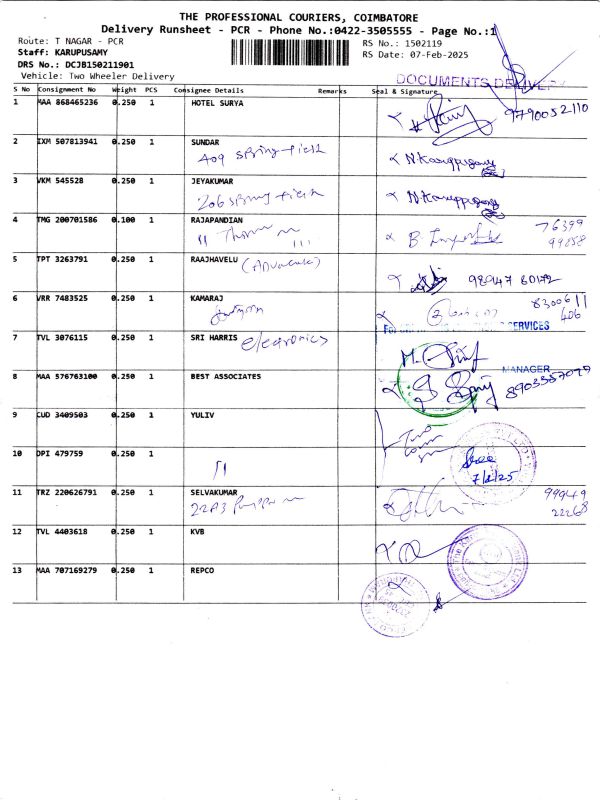 THE PROFESSIONAL COURIERS, COIMBATORE
Delivery Runsheet - PCR - Phone No.:0422-3505555 - Page No.:1
Route: T NAGAR - PCR
RS No.: 1502119
Staff: KARUPUSAMY
RS Date: 07-Feb-2025
DRS No.: DCJB150211901
Vehicle: Two Wheeler Delivery
DOCUMENTS DELIVERY
S No Consignment No Weight PCS Consignee Details Remarks Seal & Signature
1 MAA 868465236 0.250 1 HOTEL SURYA
9790052110
2 IXM 507813941 0.250 1 SUNDAR
409 Spring field
3 VKM 545528 0.250 1 JEYAKUMAR
206 Spring field
4 TMG 200701586 0.100 1 RAJAPANDIAN
76399
99858
5 TPT 3263791 0.250 1 RAAJHAVELU (Advocate)
98947 80172
6 VRR 7483525 0.250 1 KAMARAJ
8300611
406
SERVICES
7 TVL 3076115 0.250 1 SRI HARRIS electronics
MANAGER
8 MAA 576763100 0.250 1 BEST ASSOCIATES
8903557079
9 CUD 3409503 0.250 1 YULIV
10 DPI 479759 0.250 1
7/2/25
11 TRZ 220626791 0.250 1 SELVAKUMAR
99949
22268
12 TVL 4403618 0.250 1 KVB
13 MAA 707169279 0.250 1 REPCO